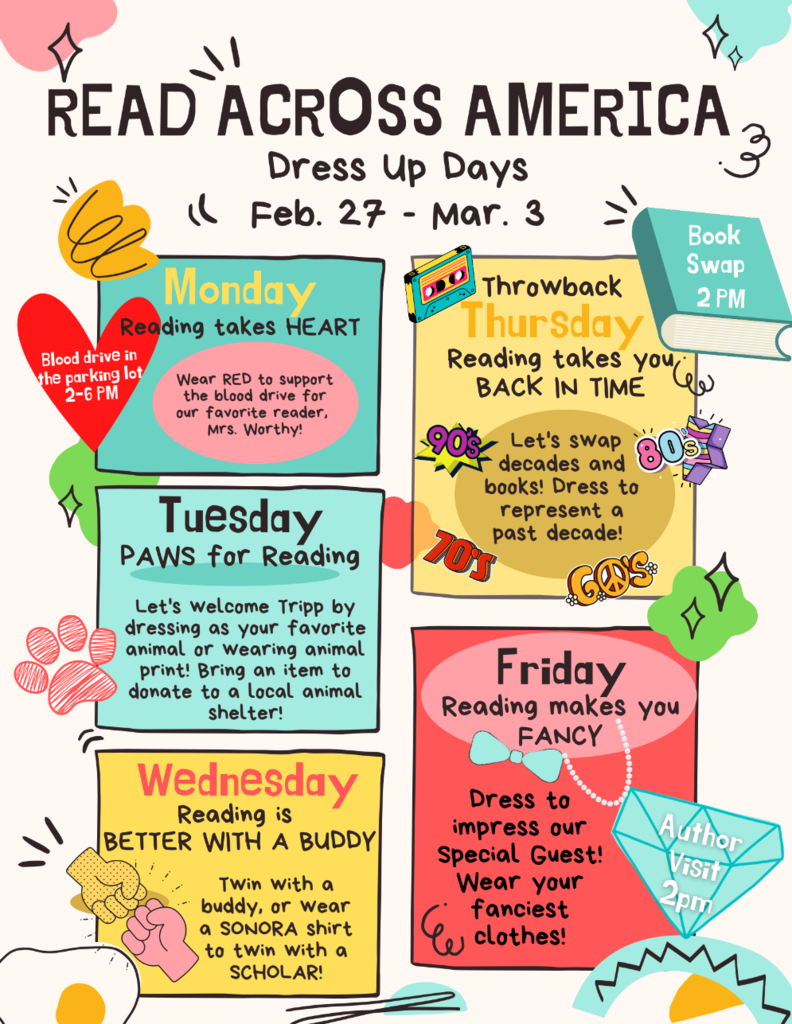 READ ACROSS AMERICA
Dress Up Days
Feb. 27 - Mar. 3
Monday
Reading takes HEART
Blood drive in
the parking lot
2-6 PM
Wear RED to support
the blood drive for
our favorite reader,
Mrs. Worthy!
Tuesday
PAWS for Reading
Let's welcome Tripp by
dressing as your favorite
animal or wearing animal
print! Bring an item to
donate to a local animal
shelter!
Wednesday
Reading is
BETTER WITH A BUDDY
Twin with a
buddy, or wear
a SONORA shirt
to twin with a
SCHOLAR!
Book
Swap
2 PM
Throwback
Thursday
Reading takes you
BACK IN TIME
90's
80's
Let's swap
decades and
books! Dress to
represent a
past decade!
70's
60's
Friday
Reading makes you
FANCY
Dress to
impress our
Special Guest!
Wear your
fanciest
clothes!
Author
Visit
2pm